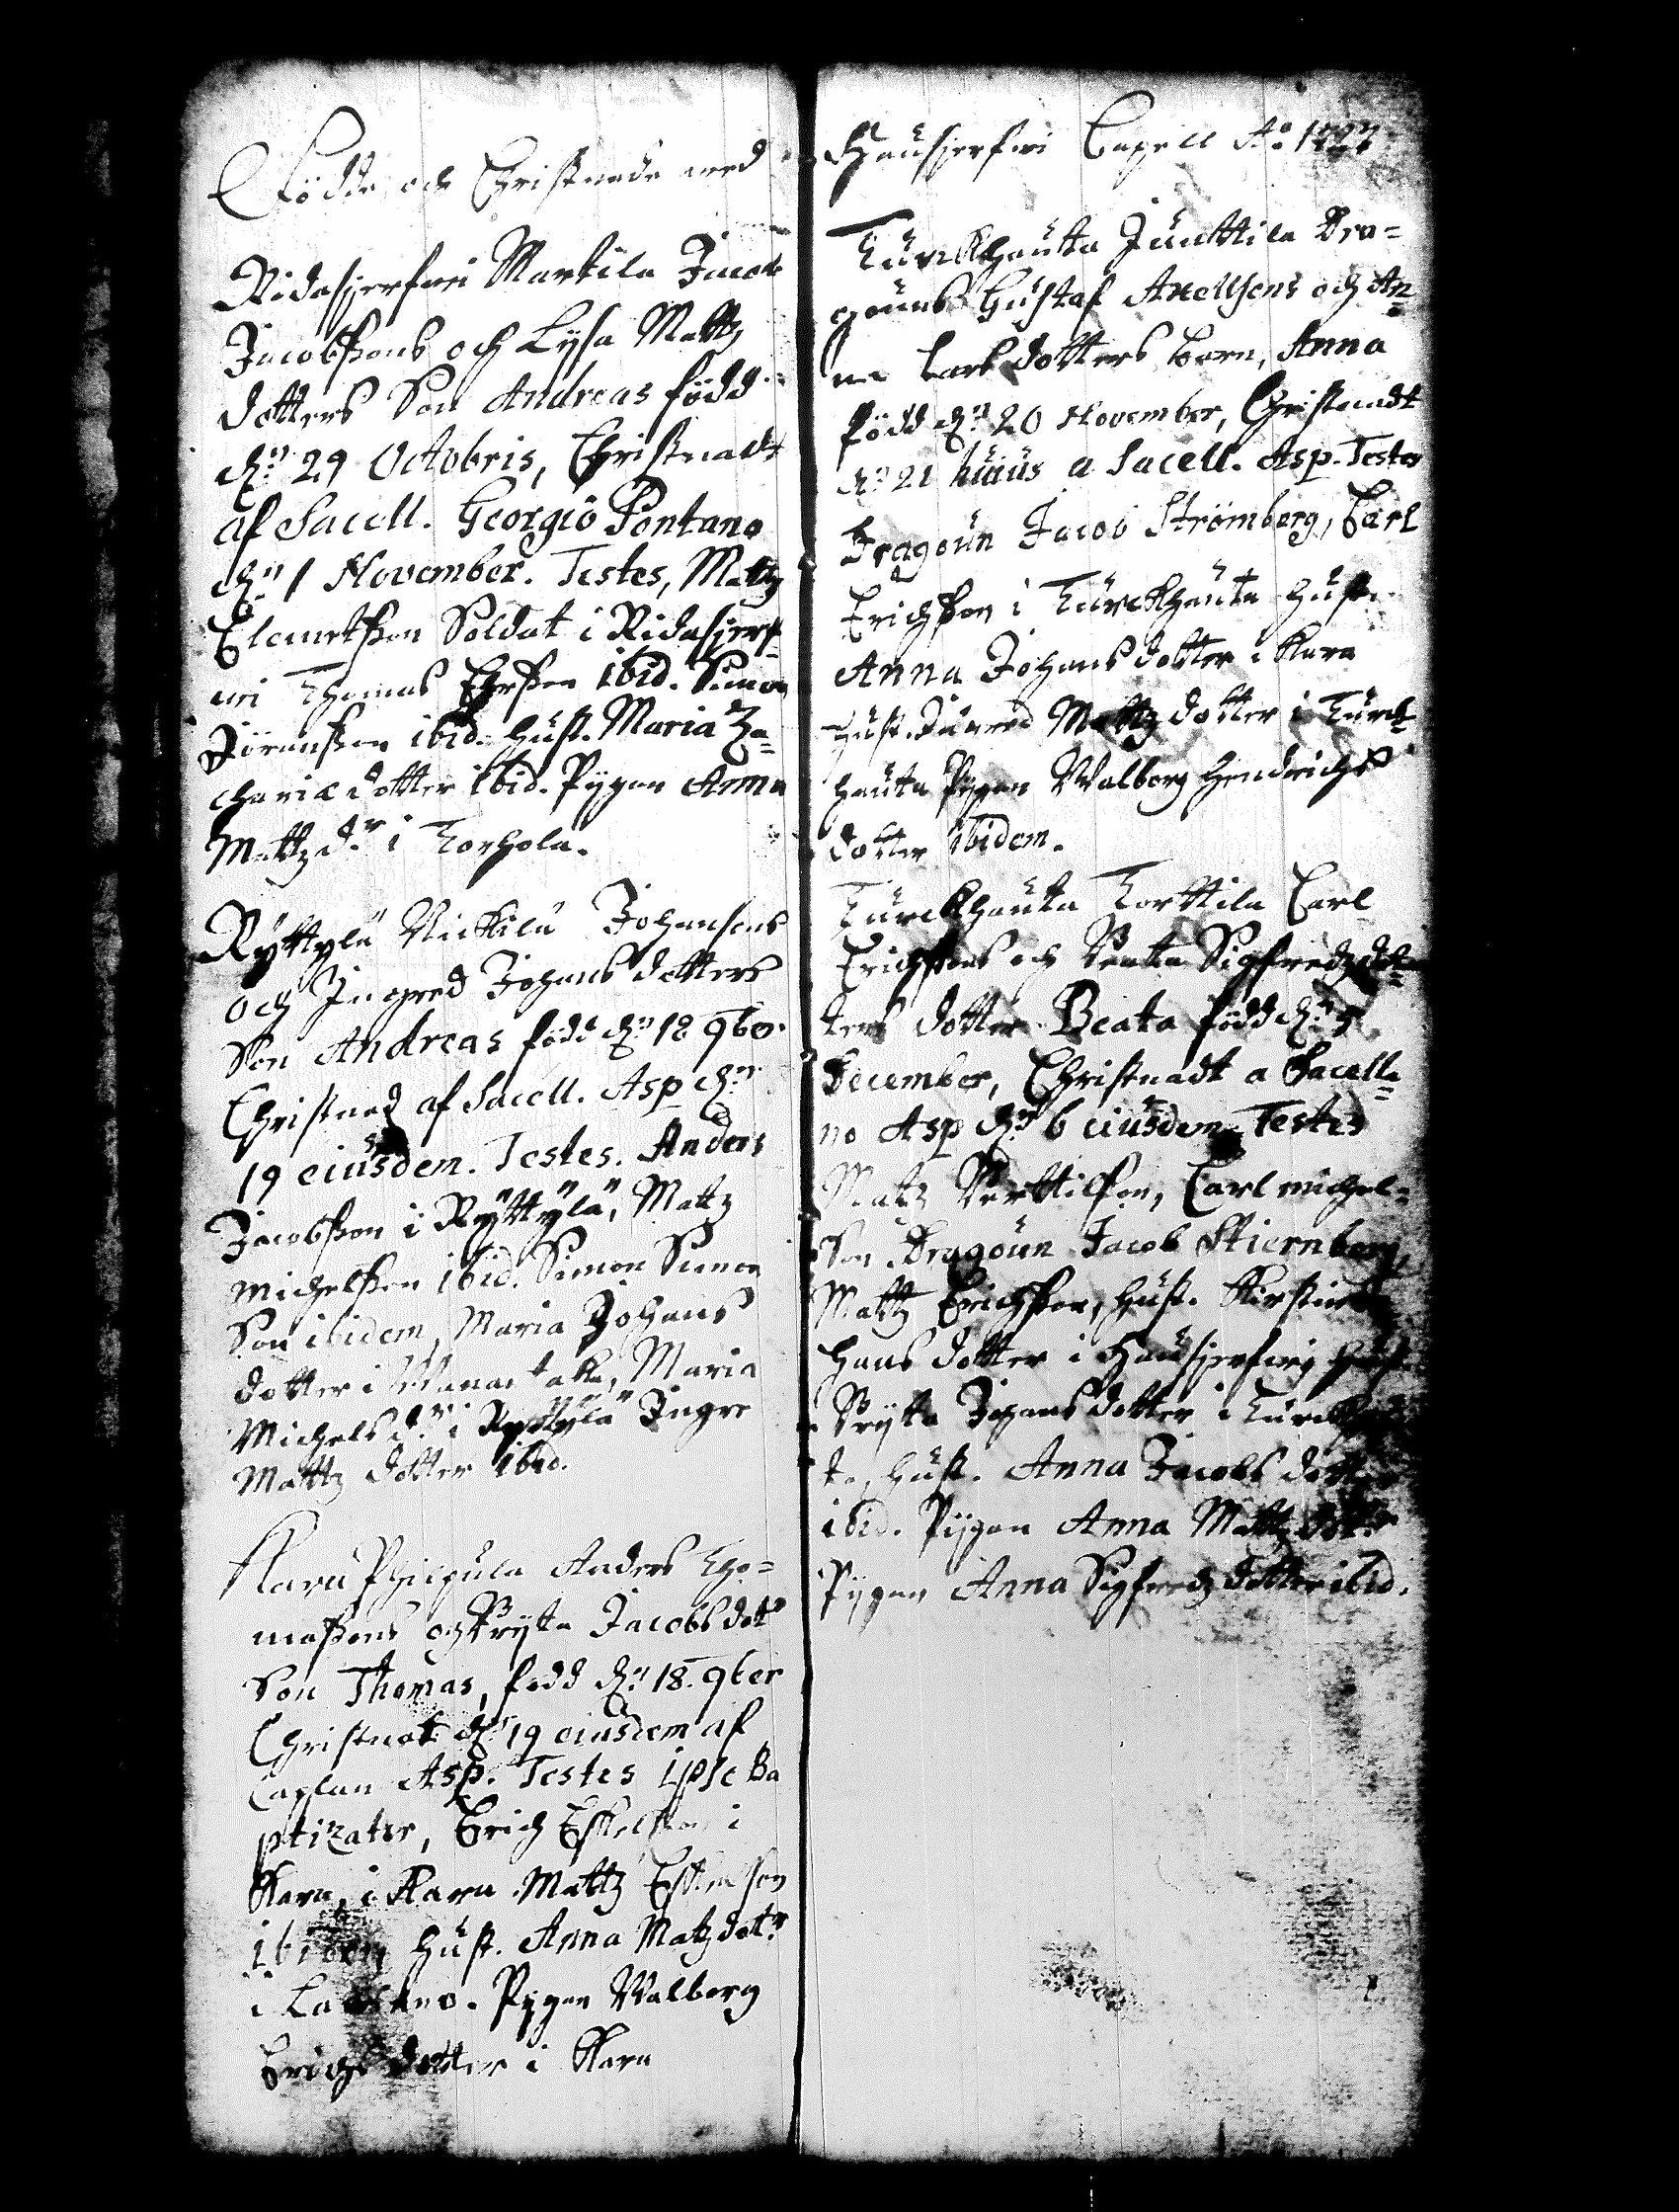 Födde och Christnade wed
Ridasjerfwi Markila Jacob
Jacobssons och Lysa Mattz
dotters Son Andreas född
d:n 29 Octobris, Christnadt
af Sacell. Georgio Pontano
d:n 1 November. Testes, Mattz
Clemetsson Soldat i Ridasjerf-
wi Thomas Ehrsson ibid. Simon
Jöransson ibid. hust. Maria Za-
chariæ dotter ibid. Pygan Anna
Mattz d:r i Torhola.
Rÿttylä Nickilä Johansons
och Ingred Johans dotters
Son Andreas född d:n 18 9ber
Christnad af Sacell. Asp d:n
19 eiusdem. Testes. Anders
Jacobsson i Rÿttylä, Mattz
Michelsson ibid. Simon Simon
Son ibidem, Maria Johans
dotter i Maria
Michels d:r i Ryttylä Ingre
Mattz dotter ibid.
Karu Anders Tho-
massons och Brÿta Jacobs dot:
Son Thomas, född d:n 18. 9ber
Christnat d:n 19 eiusdem af
Caplan Asp. Testes Ipse Ba
ptizator, Erich Eskelsson i
Karu, i Karu. Mattz Eskelson
ibidem hust. Anna Matz dot:r
i Pygan Walborg
Erichs dotter i Karu
Hausjerfwi Capell A:o 1727
Turckhauta Junttila Dra-
gouns Gustaf Axellsons och An-
na Carls dotters barn, Anna
född d:n 20 November, Christnadt
d:n 21 huius a Sacell. Asp. Testes
Dragoun Jacob Strömberg, Carl
Erichsson i Turckhauta hust.
Anna Johans dotter i Karu
hust. Mattz dotter i Turck-
hauta Pygan Walborg Hendrichs
dotter ibidem.
Turckhauta Torttila Carl
Erichssons och Beata Sigfredz dot-
ters dotter Beata född d:n 5
December, Christnadt a Sacella-
no Asp d:n 6 eiusdem Testes
Matz Berttilson, Carl Michel-
Son. Dragoun Jacob Stiernberg,
Mattz Erichsson, hust. Kirstin
Hans dotter i Hausjerfwi hust
Brÿta Johans dotter i Turckhau-
ta, hust. Anna Jacobs dotter
ibid. Pÿgan Anna Mattz dott:r
Pÿgan Anna Sigfredz dotter ibid.